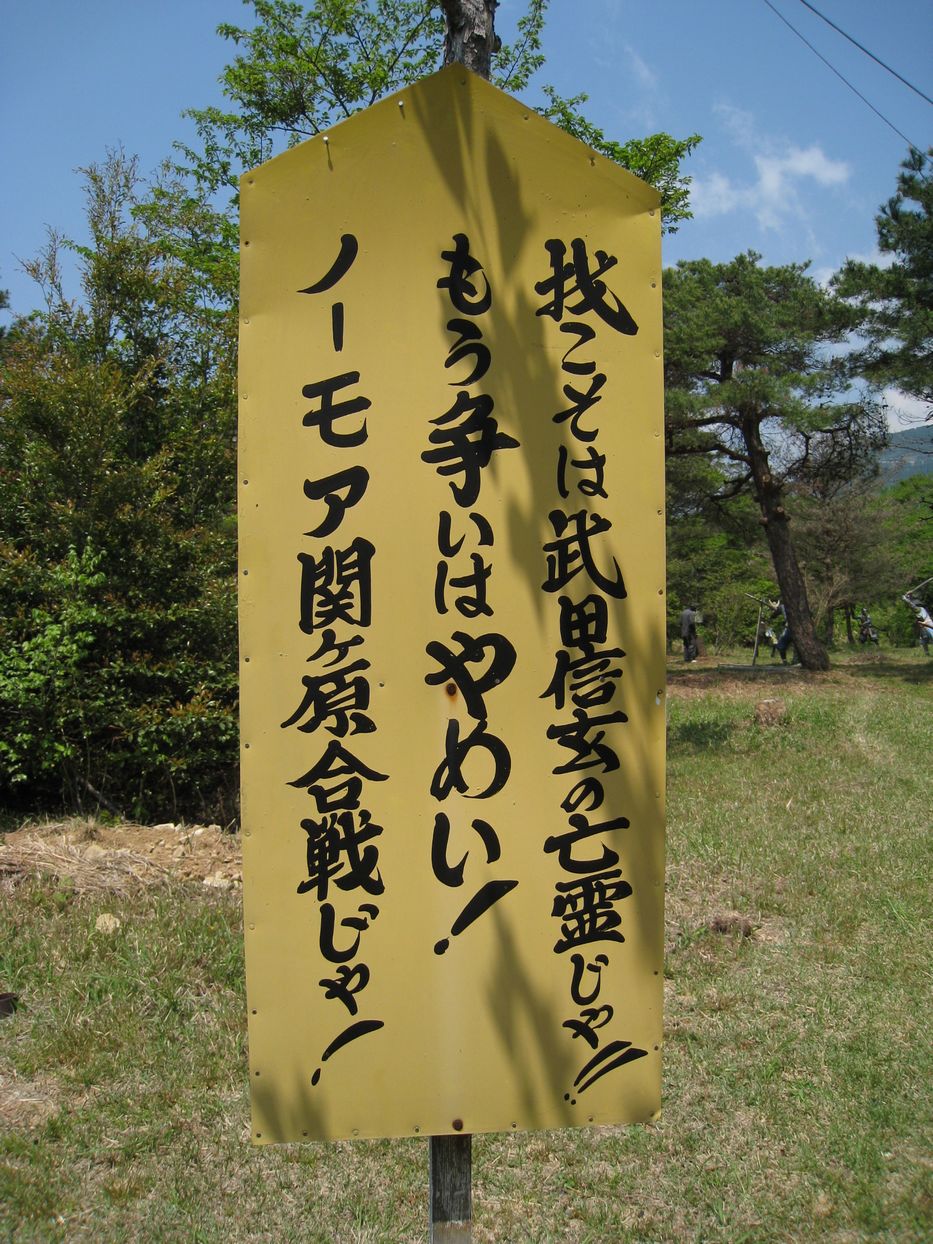 我こそは武田信玄の亡霊じゃ!!
もう争いはやめい!
ノーモア関ヶ原合戦じゃ!